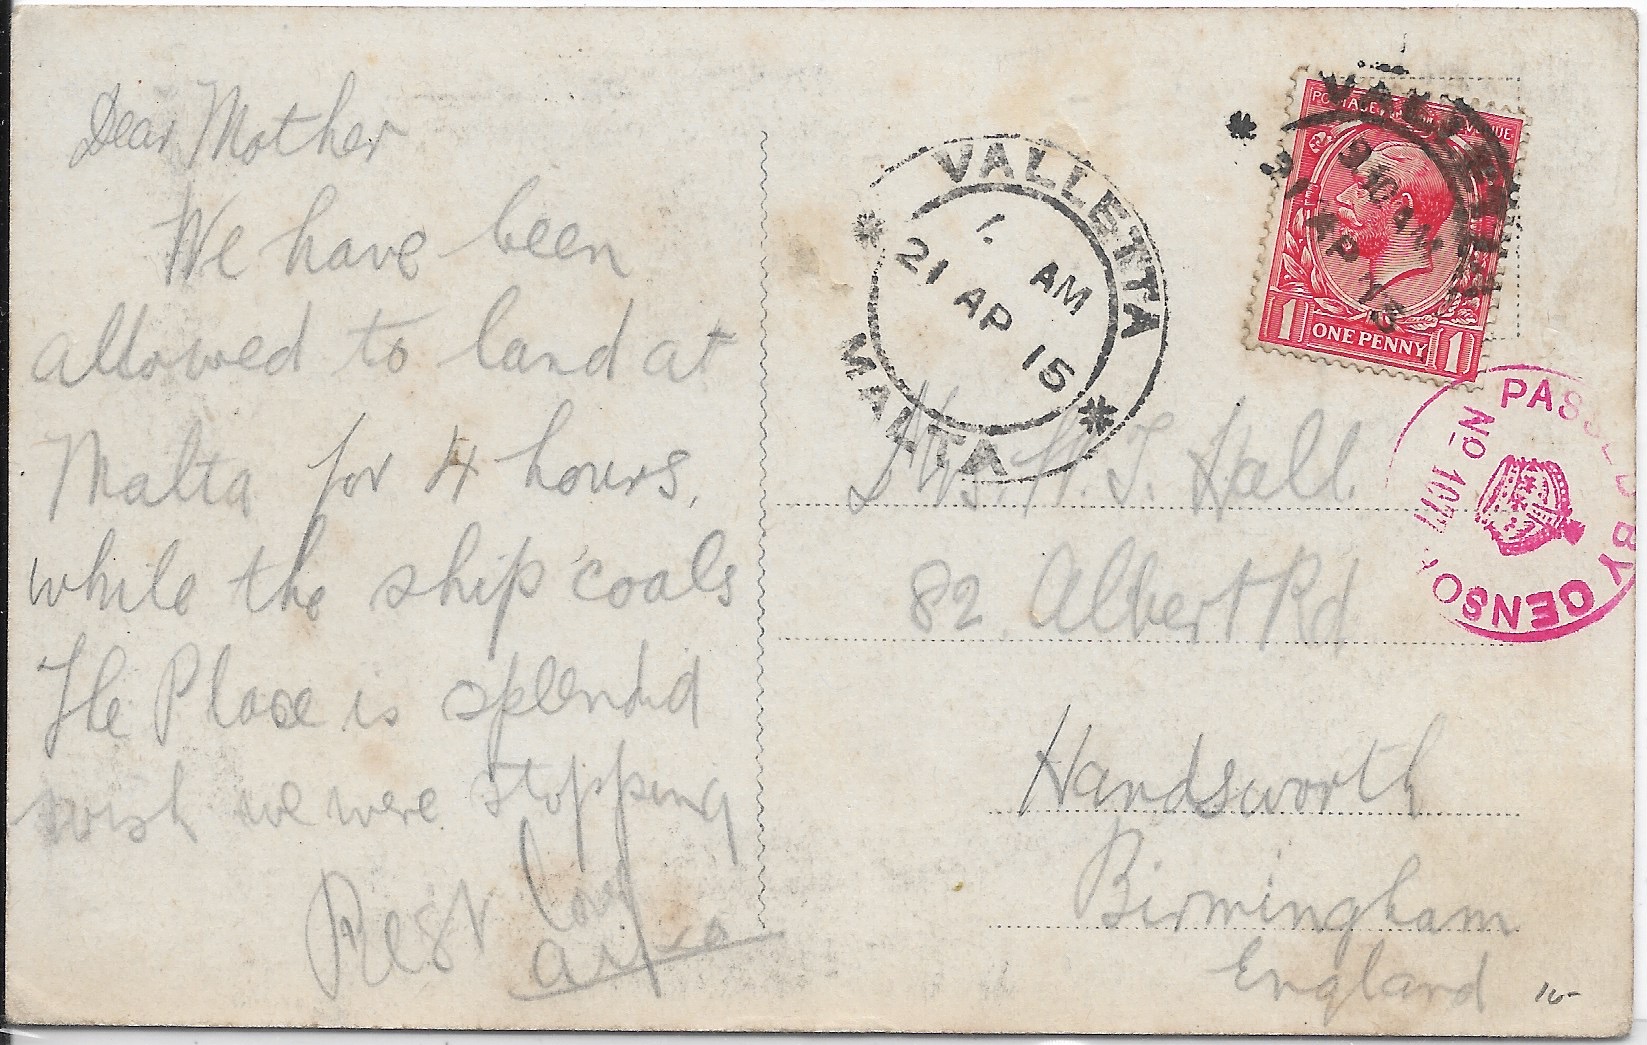 Dear Mother
We have been
allowed to land at
Malta for 4 hours,
while the ship coals
The Place is splendid
wish we were stopping
Best love
VALLETTA
1. AM
21 AP 15
MALTA
POSTAGE REVENUE
1 ONE PENNY 1
PASSED BY CENSOR
No
Mrs. W. J. Hall.
82 Albert Rd
Handsworth
Birmingham
England